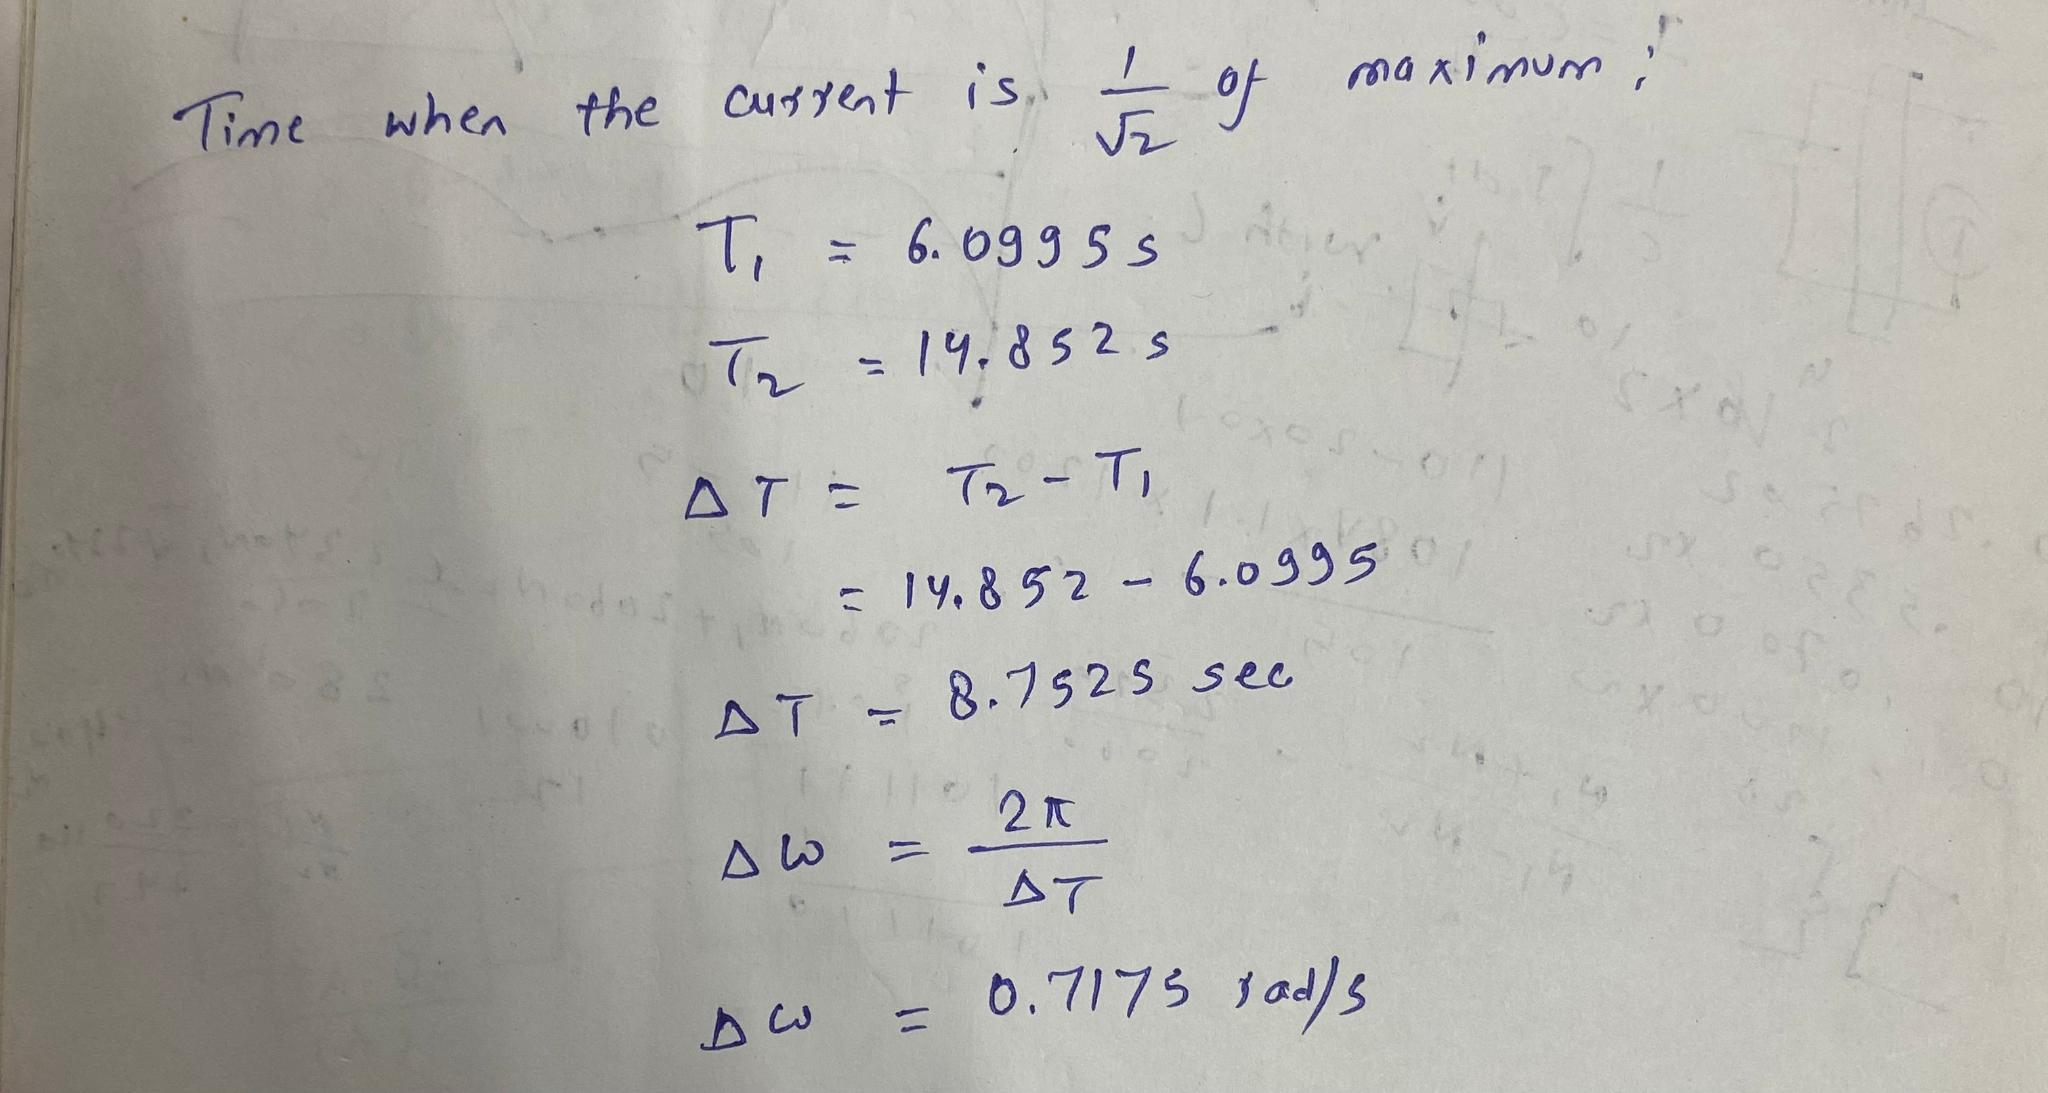 Time when the current is 1/√2 of maximum:
T₁ = 6.0995 s
T₂ = 14.852 s
ΔT = T₂ - T₁
= 14.852 - 6.0995
ΔT = 8.7525 sec
Δω = 2π/ΔT
Δω = 0.7175 rad/s